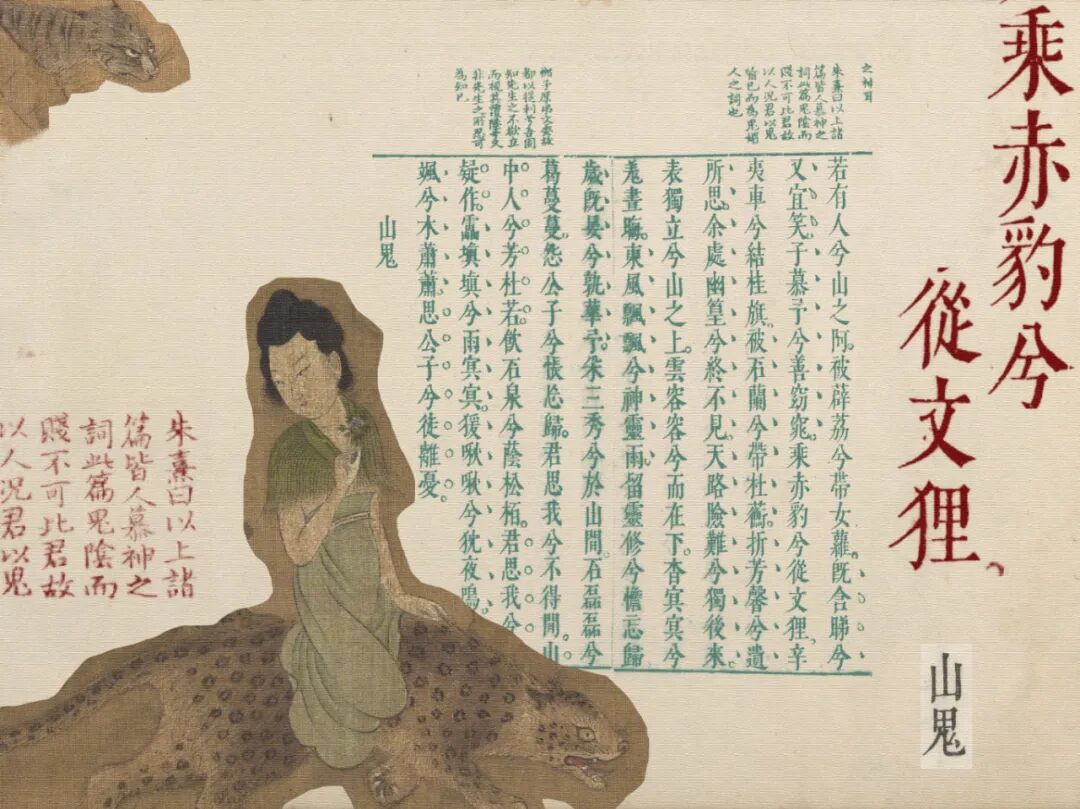 乘赤豹兮
從文狸、
山鬼
朱熹曰以上諸
篇皆人慕神之
詞此篇鬼陰而
賤不可比君故
以人況君以鬼
喻己而為鬼媚
人之詞也
知先生之不欲立
非先生之所忍可
為知已
若有人兮山之阿。被薜荔兮帶女蘿。旣含睇兮
又宜笑。子慕予兮善窈窕。乘赤豹兮從文狸、辛
夷車兮結桂旗。被石蘭兮帶杜蘅。折芳馨兮遺
所思。余處幽篁兮終不見天路險難兮獨後來
表獨立兮山之上。雲容容兮而在下。杳冥冥兮
羌晝晦。東風飄飄兮神靈雨留靈修兮憺忘歸
歲旣晏兮孰華予。采三秀兮於山間。石磊磊兮
葛蔓蔓。怨公子兮悵忘歸。君思我兮不得閒。山
中人兮芳杜若。飲石泉兮蔭松柏。君思我兮
疑作。靁塡塡兮雨冥冥。猨啾啾兮狖夜鳴。
颯兮木蕭蕭。思公子兮徒離憂。
山鬼
朱熹曰以上諸
篇皆人慕神之
詞此篇鬼陰而
賤不可比君故
以人況君以鬼